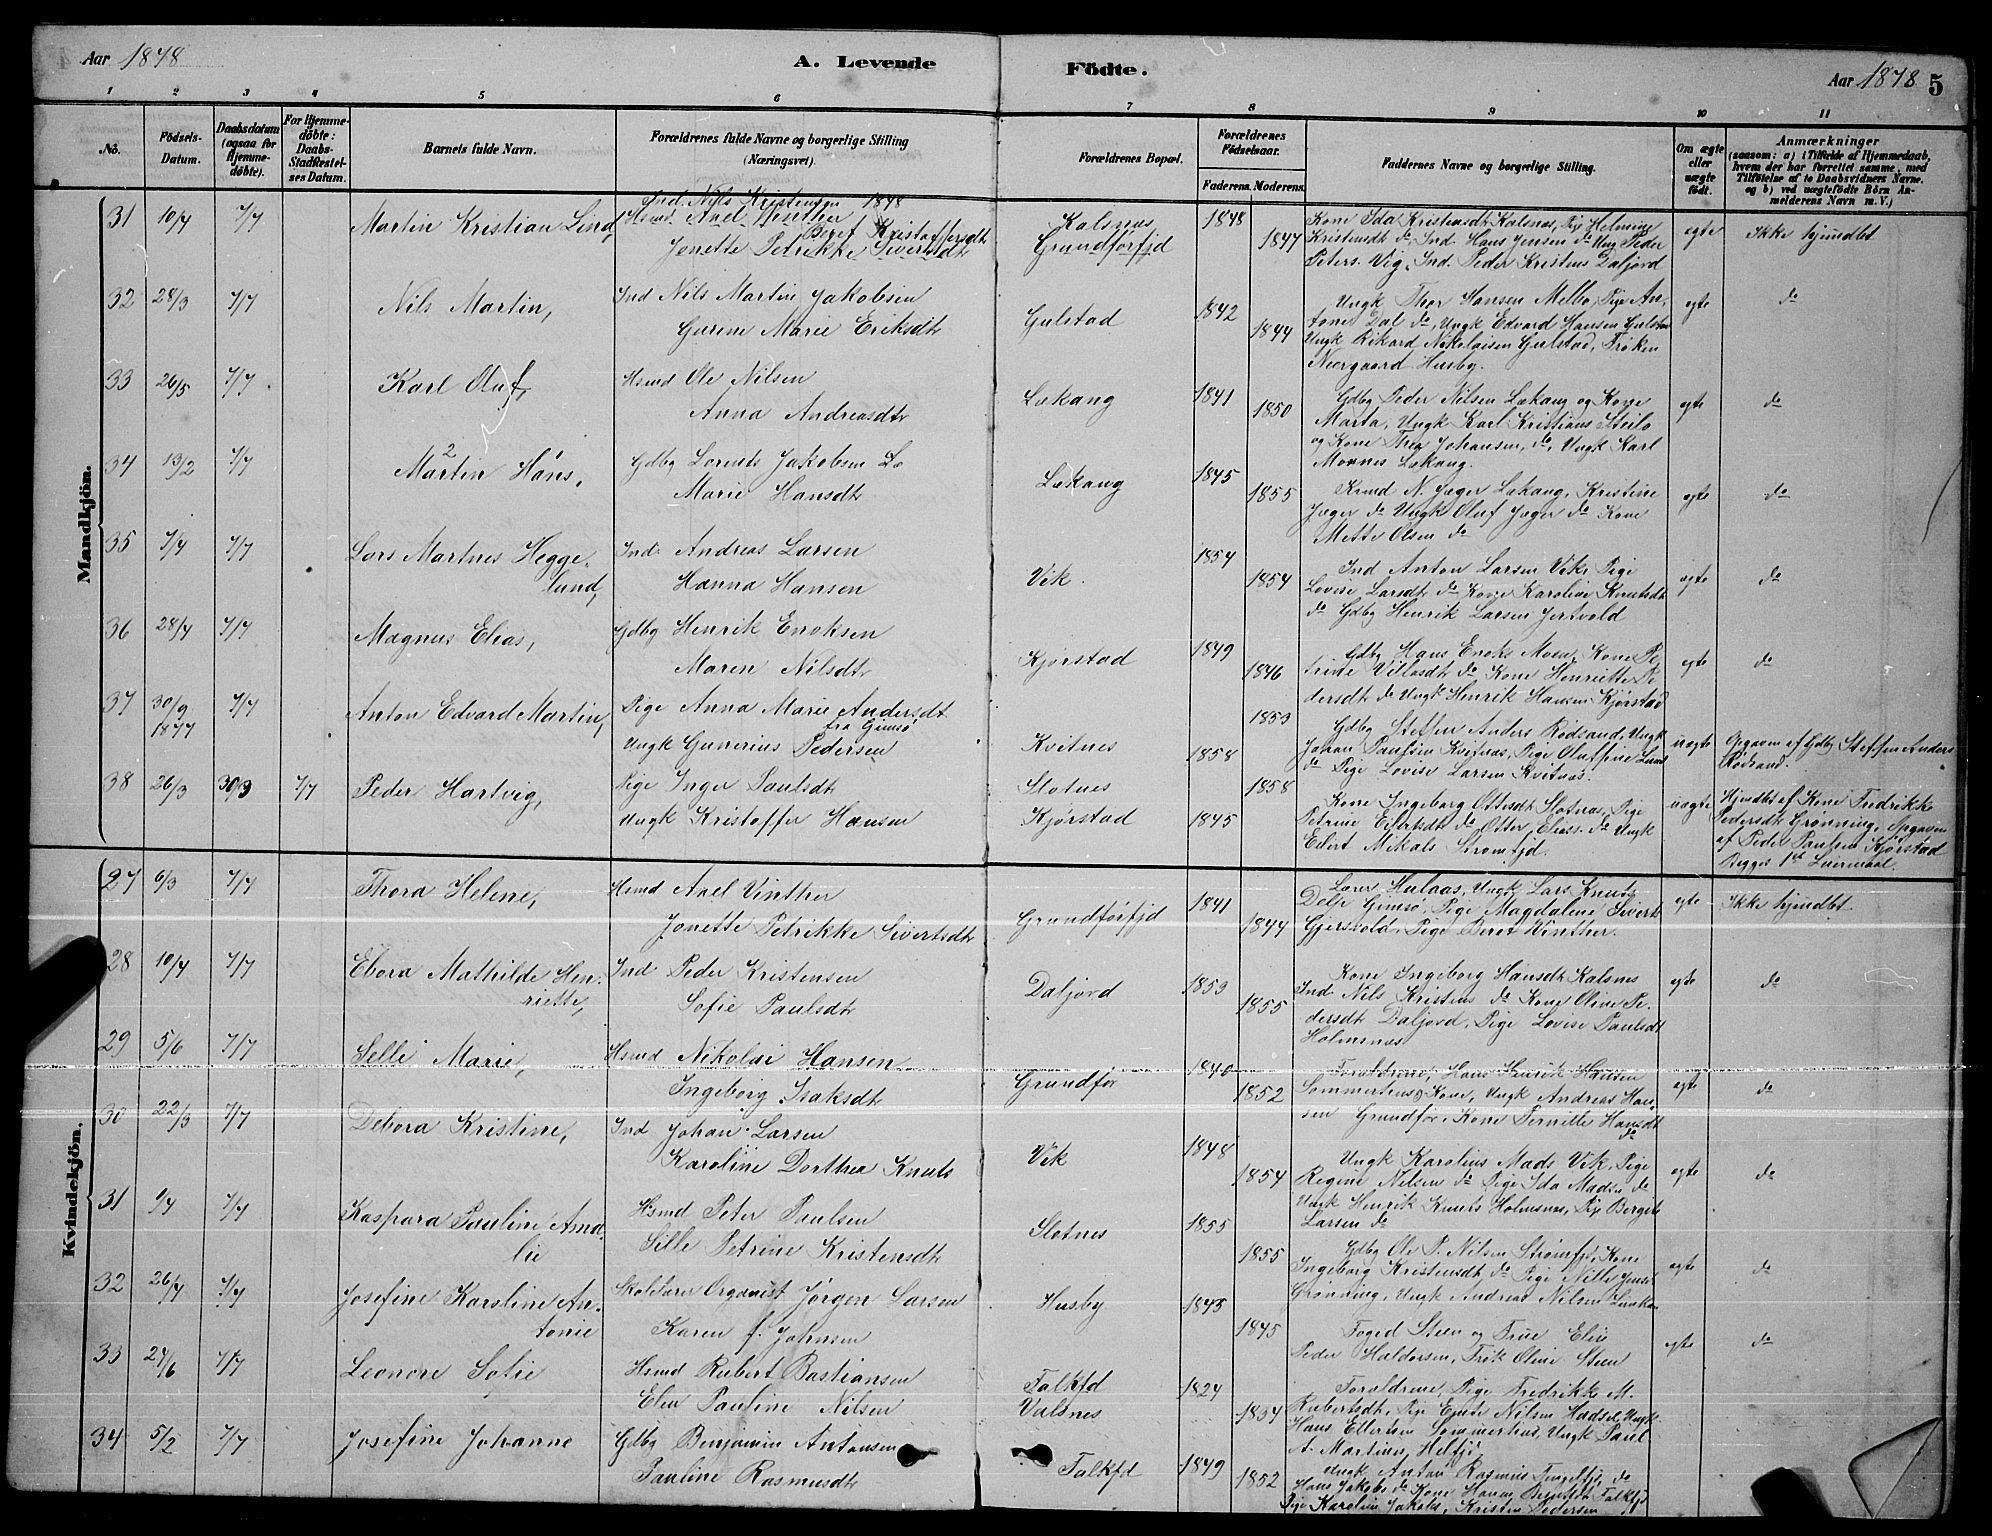 Aar 1878
A. Levende
Födte.
Aar 1878 5
1 2 3 4 5 6 7 8 9 10 11
No.
Födsels-Datum.
Daabsdatum (ogsaa for Hjemmedöbte).
For Hjemmedöbte: Daabs-Stadfestelses Datum.
Barnets fulde Navn.
Forældrenes fulde Navne og borgerlige Stilling (Næringsvei).
Forældrenes Bopæl.
Forældrenes Födselsaar.
Faderens. Moderens.
Faddernes Navne og borgerlige Stilling.
Om ægte eller uægte födt.
Anmærkninger
(saasom: a) i Tilfælde af Hjemmedaab, hvem der har forrettet samme, med Tilföielse af to Daabsvidners Navne. og b) ved uægtefödte Börn Anmelderens Navn m. V.)
Mandkjön.
31 10/4 7/7 Martin Kristian Lind,
Ind. Nils Kristensen 1848
Hsmd Axel Vinther
Beret Kristoffersdt
Jonette Petrikke Sivertsdt
Kalsnes
Grundførfjd
1848 1847
Kone Ida Kristensdt Kalsnæs, Pige Helmine
Kristensdt do, Ind. Hans Jensen do Ung Peder
Peters. Vig, Ind. Peder Kristens Daljord
egte Ikke hjmdbt
32 28/3 7/7 Nils Martin,
Ind Nils Martin Jakobsen
Gurine Marie Eriksdt
Gulstad 1842 1844
Ungk Thor Hansen Melbo, Pige An-
tone Dal do, Ungk Edvard Hansen Gulstad
Ungk Rikard Nikolaisen Gulstad, Frøken
Neergaard Husby.
egte do
33 26/5 7/7 Karl Oluf,
Hsmd Ole Nilsen
Anna Andreasdt
Lekang 1841 1850
Gdbg Peder Nilsen Lekang og Kone
Marta, Ungk Karl Kristians Steilo
og Kone Thea Johansen, do, Ungk Karl
Monnes Lekang.
egte do
34 13/2 7/7 Martin Hans,
Gdbg Lorents Jakobsen Le
Marie Hansdt
Lekang 1845 1855
Kmd N. Jæger Lekang, Kristine
Jæger do Ungk Oluf Jæger do Kone
Mette Olsen do
egte do
35 7/4 7/7 Lars Martnes Hegge-
lund,
Ind. Andreas Larsen
Hanna Hansen
Vik. 1854 1854
Ind Anton Larsen Vik, Pige
Lovise Larsdt do Kone Karoline Knutsdt
do Gdbg Henrik Larsen Jertvold
egte do
36 28/4 7/7 Magnus Elias,
Gdbg Henrik Enoksen
Maren Nilsdt
Kjørstad 1849 1846
Gdbg Hans Enoks Moen, Kone Pe-
trine Villasdt do Kone Henriette Pe-
dersdt do Ungk Henrik Hansen Kjørstad
egte do
37 30/9 1877 7/7 Anton Edvard Martin,
Pige Anna Marie Andersdt
fra Gimsø
Ungk Gunerius Pedersen
Kvitnes 1858 1853
Gdbg Steffen Anders Rødsand, Ungk
Johan Paulsen Kvitnæs, Pige Oluffine Lund
do Pige Lovise Larsen Kvitnæs.
uægte Opgaven af Gdbg Steffen Anders
Rødsand.
38 26/3 30/3 7/7 Peder Hartvig,
Pige Inger Paulsdt
Ungk Kristoffer Hansen
Slotnes
Kjørstad 1845 1858
Kone Ingeborg Ottesdt Slotnæs, Pige
Petrine Eilertsdt do Otter Elias. do Ungk
Eilert Mikals Strømfjd.
uægte Hjmdbt af Kone Fredrikke
Pedersdt Grønning, Opgaven
af Peder Paulsen Kjørstad
Begges 1st Leiermaal.
Kvindekjön.
27 6/3 7/7 Thora Helene,
Hsmd Axel Vinther
Jonette Petrikke Sivertsdt
Grundførfjd 1841 1844
Lærer Hulaas, Ungk Lars Knuts
Delp Gimsø, Pige Magdalene Sivert
Gjerskold, Pige Beret Winther.
egte Ikke hjmdbt
28 10/4 7/7 Ebora Mathilde Hen-
riette,
Ind Peder Kristensen
Sofie Paulsdt
Daljord 1853 1855
Kone Ingeborg Hansdt Kalsnes
Ind. Nils Kristens do Kone Oline Pe-
dersdt Daljord, Pige Lovise Paulsdt
Holmsnæs
egte do
29 5/6 7/7 Selle Marie,
Hsmd Nikolai Hansen
Ingeborg Isaksdt
Grundfør 1840 1852
Foreldrene, Hans Henrik Hansen
Sommerhus og Kone, Ungk Andreas Han-
sen Grundfør, Kone Pernille Hansdt
do
egte do
30 22/3 7/7 Debora Kristine,
Ind Johan Larsen
Karoline Dorthea Knuts
Vik 1848 1854
Ungk Karolius Mads Vik, Pige
Regine Nilsen do Pige Ida Madsn do
Ungk Henrik Knuts Holmsnæs, Pige Bergite
Larsen do
egte do
31 1/4 7/7 Kaspara Pauline Ama-
lie
Hsmd Peter Paulsen
Sille Petrine Kristensdt
Slotnes 1855 1855
Gdbg Ole P. Nilsen Strømfjd, Kone
Ingeborg Kristensdt do Pige Nille Jensdt
Grønning, Ungk Andreas Nilsen
egte do
32 26/4 7/7 Josefine Karoline An-
tonie
Skolelærer Organist Jørgen Larsen
Karen f. Johnsen
Husby 1843 1845
Foged Steen og Frue Elise
Peder Haldorsen, Frøk Oline Steen
egte do
33 24/6 7/7 Leonore Sofie
Hsmd Rubert Bastiansen
Elen Pauline Nilsen
Falkfd
Valsnes 1824 1834
Foreldrene, Pige Fredrikke M.
Rubertsdt, Pige Nilsen Hadsel, Ungk
Hans Ellertsen Sommerhus, Ungk Paul
A. Martins, Helfjd
34 5/2 7/7 Josefine Johanne
Gdbg Benjamin Antonsen
Pauline Rasmusdt
Falkfd 1849 1852
Ungk Anton Rasmus Tengelfjd, do
Hans Jakobs do Kone Hanna Berntdt Falkfjd
Pige Karoline Jakobs, Kristen Pedersen